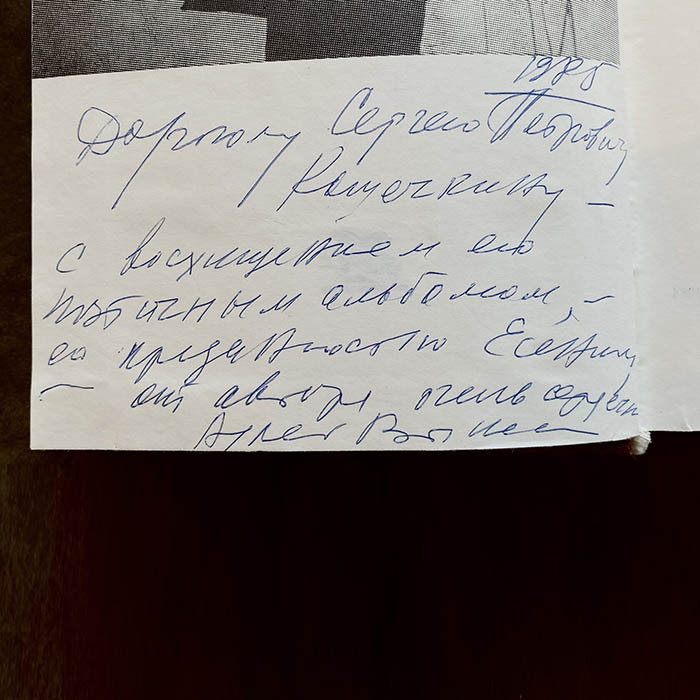 1985
Дорогому Сергею Петровичу
Кошечкину –
с восхищением его
поэтичным альбомом, –
его преданностью Есенину
– от автора очень сердечно
Андрей Вознесен